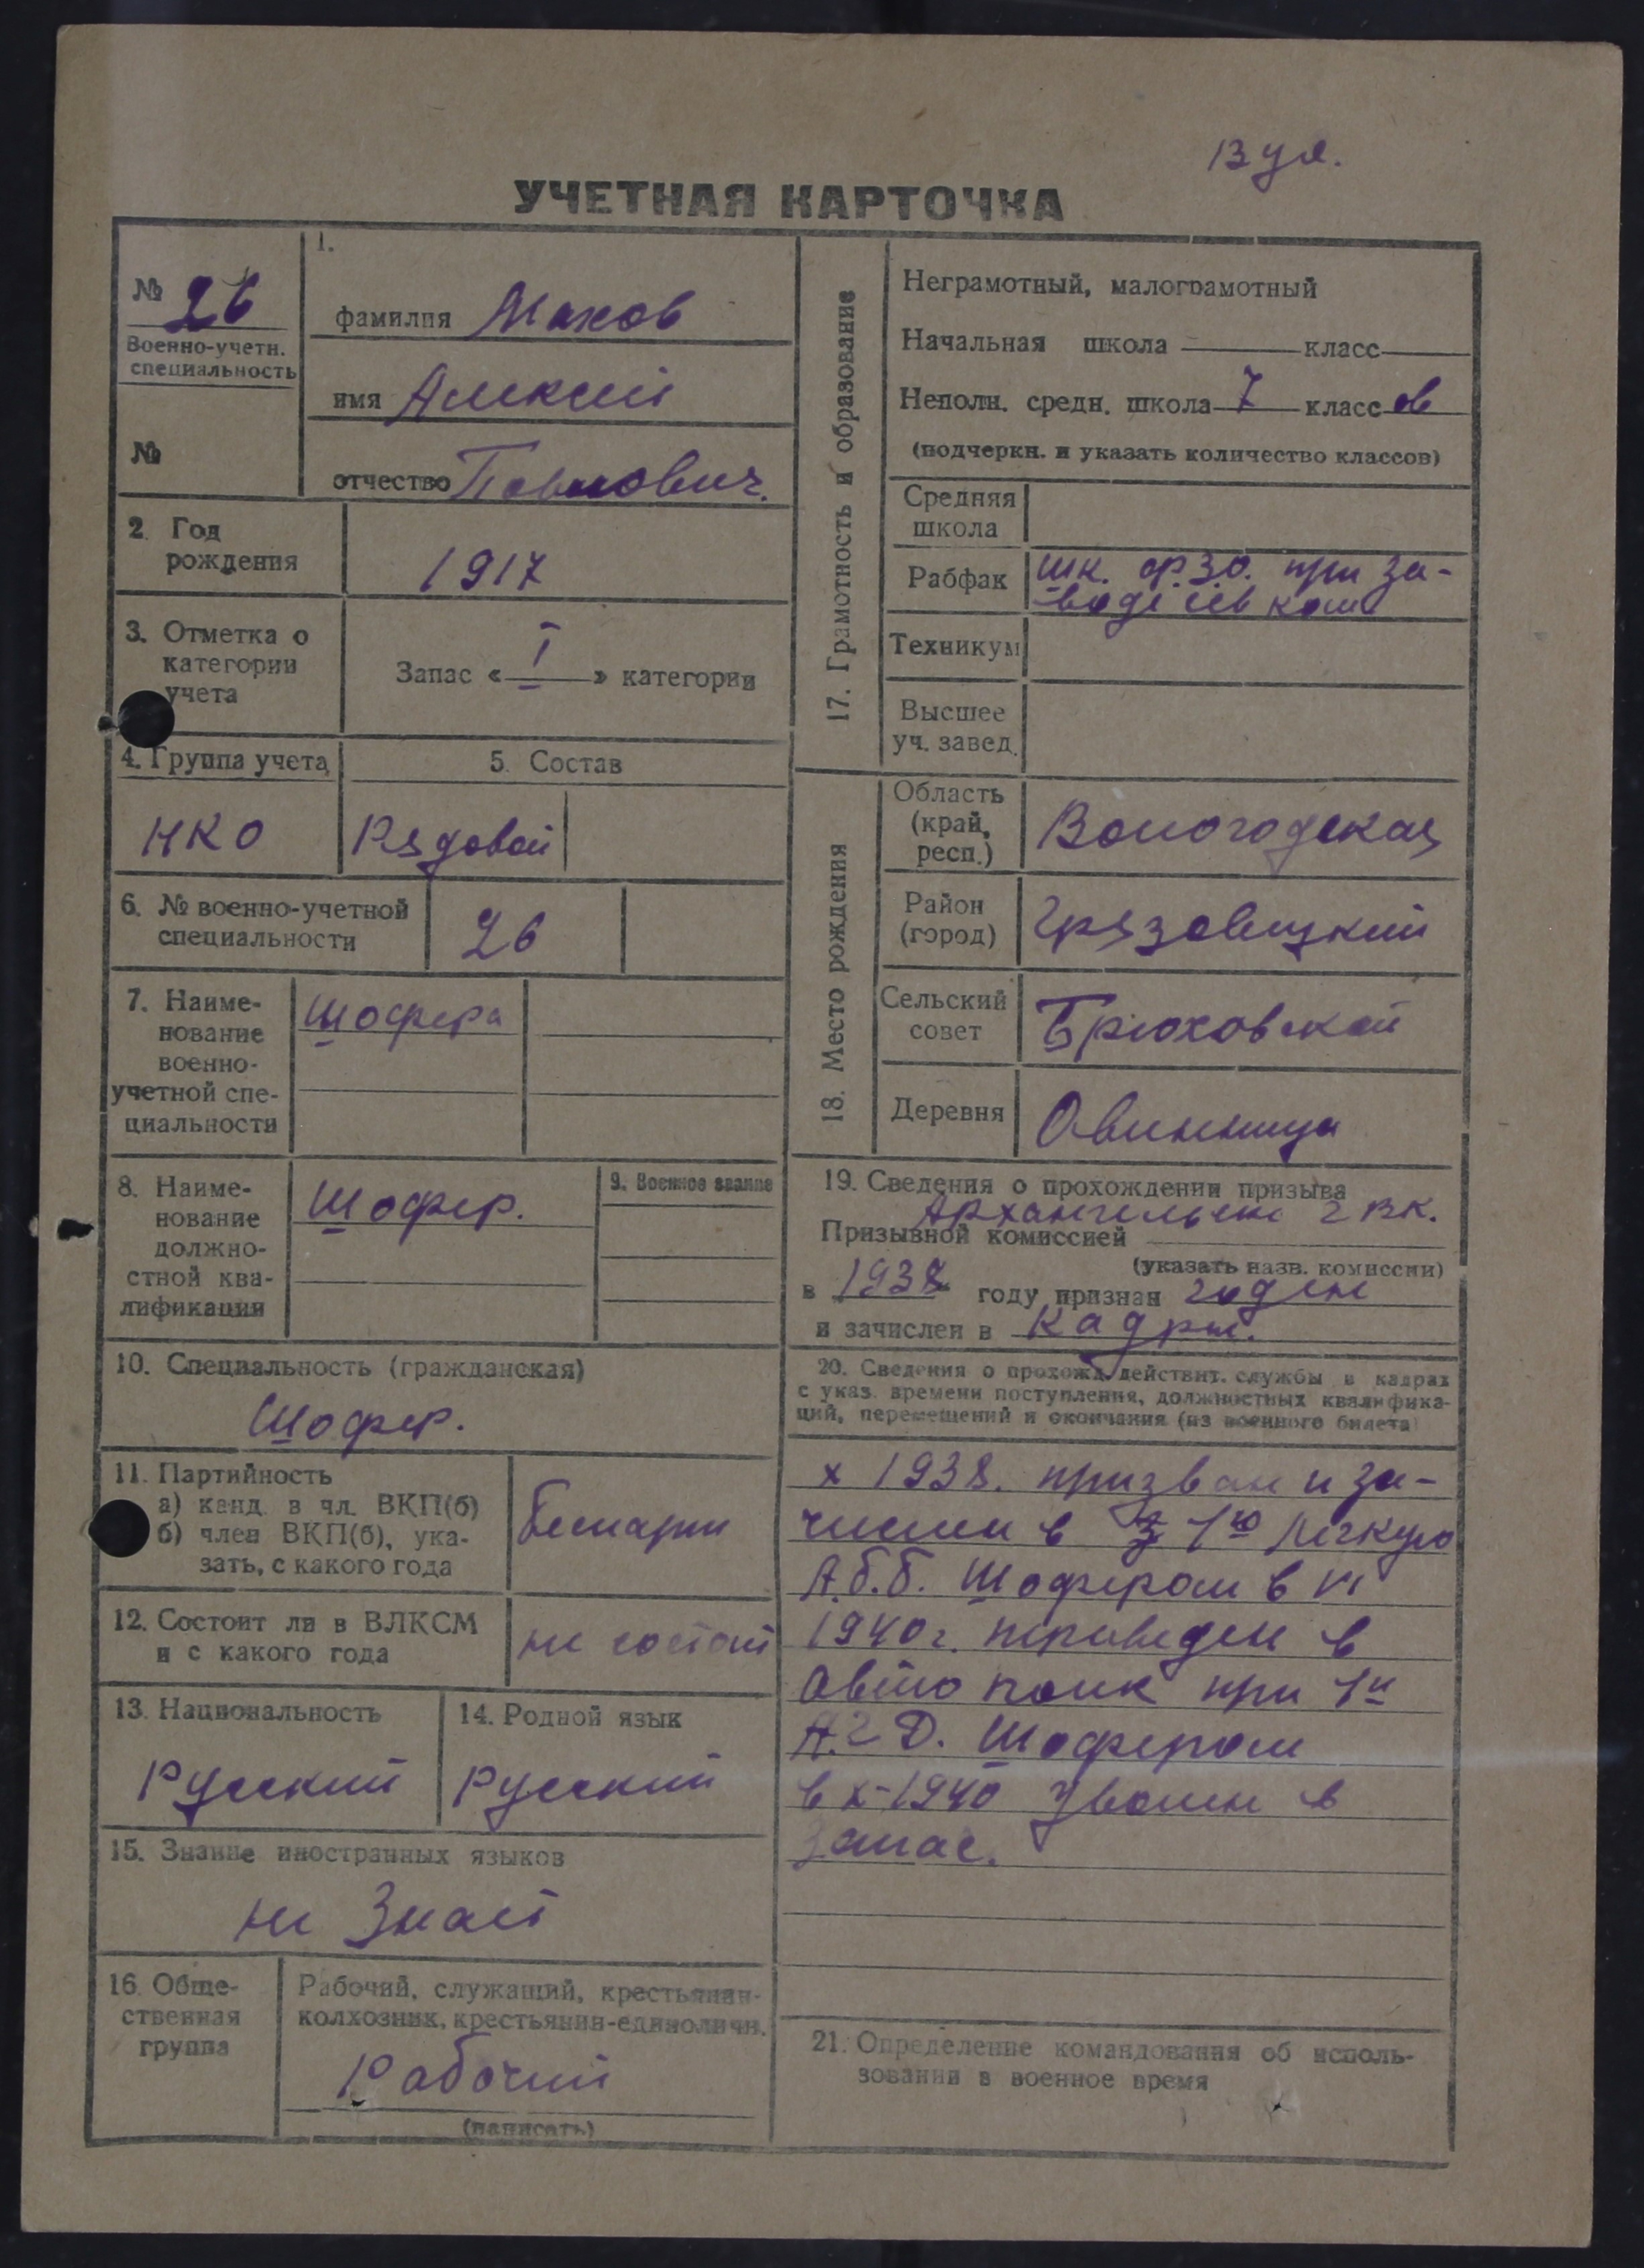 13 уч.
УЧЕТНАЯ КАРТОЧКА
№ 26
Военно-учетн.
специальность
№
1.
фамилия Махов
имя Алексей
отчество Павлович.
2. Год
рождения
1917
3. Отметка о
категории
учета
Запас « I » категории
4. Группа учета
НКО
5. Состав
Рядовой
6. № военно-учетной
специальности
26
7. Наиме-
нование
военно-
учетной спе-
циальности
шофера
8. Наиме-
нование
должно-
стной ква-
лификации
Шофер.
9. Военное звание
10. Специальность (гражданская)
Шофер.
11. Партийность
а) канд. в чл. ВКП(б)
б) член ВКП(б), ука-
зать, с какого года
Беспарти
12. Состоит ли в ВЛКСМ
и с какого года
не состоит
13. Национальность
Русский
14. Родной язык
Русский
15. Знание иностранных языков
не Знает
16. Обще-
ственная
группа
Рабочий, служащий, крестьянин-
колхозник, крестьянин-единоличн.
Рабочий
(написать)
17. Грамотность и образование
Неграмотный, малограмотный
Начальная школа класс
Неполн. средн. школа 7 класс ов
(подчеркн. и указать количество классов)
Средняя
школа
Рабфак
шк. ф.з.о. при за-
воде
Техникум
Высшее
уч. завед.
18. Место рождения
Область
(край,
респ.)
Вологодская
Район
(город)
Грязовецкий
Сельский
совет
Брюховской
Деревня
Овинница
19. Сведения о прохождении призыва
Архангельске г вк.
Призывной комиссией
(указать назв. комиссии)
в 1938 году признан годен
и зачислен в кадры.
20. Сведения о прохожд. действит. службы в кадрах
с указ. времени поступления, должностных квалифика-
ций, перемещений и окончания (из военного билета)
х 1938. призван и за-
числен в 1ю легкую
А.б.б. Шофером в VI
1940 г. переведен в
Авто полк при 1й
А.г Д. Шофером
в х-1940 Уволен в
Запас.
21. Определение командования об исполь-
зовании в военное время